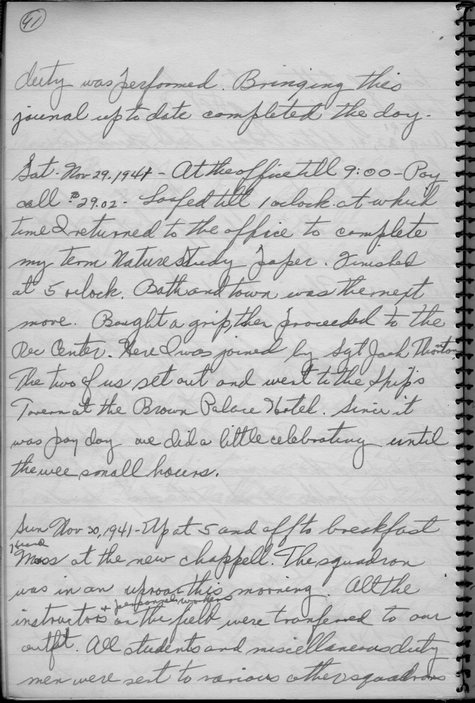 41
duty was performed. Bringing this
journal up to date completed the day.
Sat. Nov 29. 1941 - At the office till 9:00 - Pay
call $29.02 - Loafed till 1 oclock at which
time I returned to the office to complete
my term Nature Study paper. Finished
at 5 oclock. Bath and town was the next
move. Bought a grip then proceeded to the
Rec Center. Here I was joined by Sgt Jack Thorton
The two of us set out and went to the Ship's
Tavern at the Brown Palace Hotel. Since it
was pay day we did a little celebrating until
the wee small hours.
Sun Nov 30, 1941 - Up at 5 and off to breakfast
Mass at the new chappell. The squadron
was in an uproar this morning. All the
instructors + personnel on the field were tranferred to our
outfit. All students and misicellaneous duty
men were sent to various other squadrons